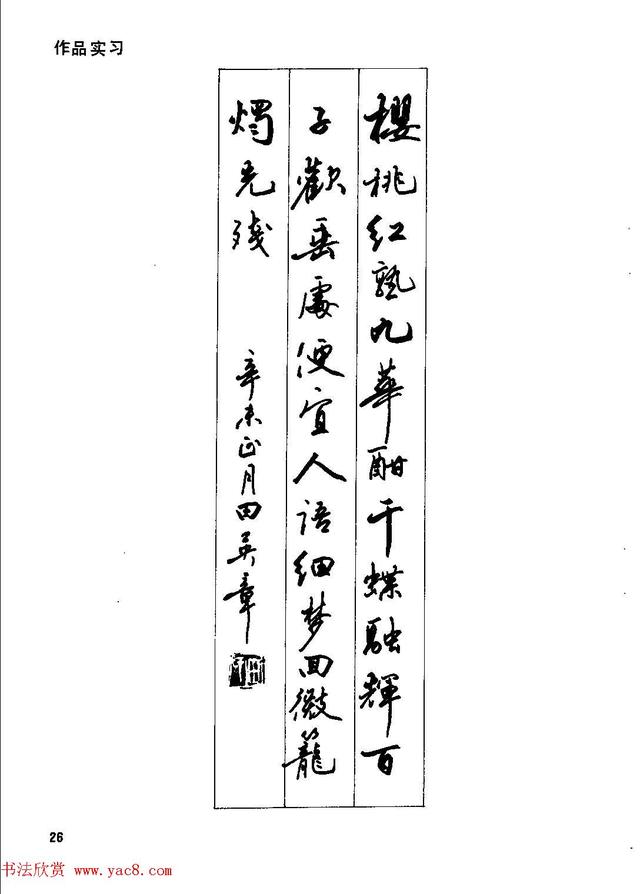 作品实习
樱桃红熟九華酣千蝶融輝百
子歡垂處便宜人语细梦回微籠
烛光残
辛未正月田英章
26
书法欣赏 www.yac8.com